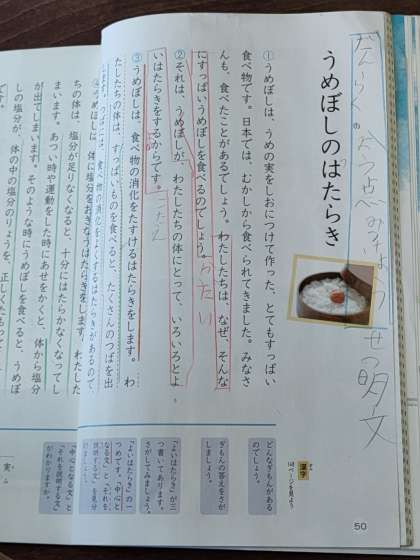 うめぼしのはたらき
①うめぼしは、うめの実をしおにつけて作った、とてもすっぱい
食べ物です。日本では、むかしから食べられてきました。みなさ
んも、食べたことがあるでしょう。わたしたちは、なぜ、そんな
にすっぱいうめぼしを食べるのでしょう。
②それは、うめぼしが、わたしたちの体にとって、いろいろとよ
いはたらきをするからです。
③うめぼしは、食べ物の消化をたすけるはたらきをします。わ
たしたちの体は、すっぱいものを食べると、たくさんのつばを出
します。つばには、食べ物の消化を
するはたらきがあるので、
④うめぼしは、体に塩分をおぎなうはたらきをします。わたした
ちの体は、塩分が足りなくなると、十分にはたらかなくなってし
まいます。あつい時や運動をした時にあせをかくと、体から塩分
が出てしまいます。そのような時にうめぼしを食べると、うめぼ
しの塩分が、体の中の塩分のりょうを、正しくたもって
です。
どんなぎもんがある
のでしょう。
ぎもんの答えをさが
しましょう。
「よいはたらき」が三
つ書いてあります。
さがしてみましょう。
「よいはたらき」の一
つめです。「中心と
なる文」と、「それを
説明する文」を見分
「中心となる文」と
「それを説明する文」
がわかりますか。
漢字
ページを見よう
50
だんらくの
文